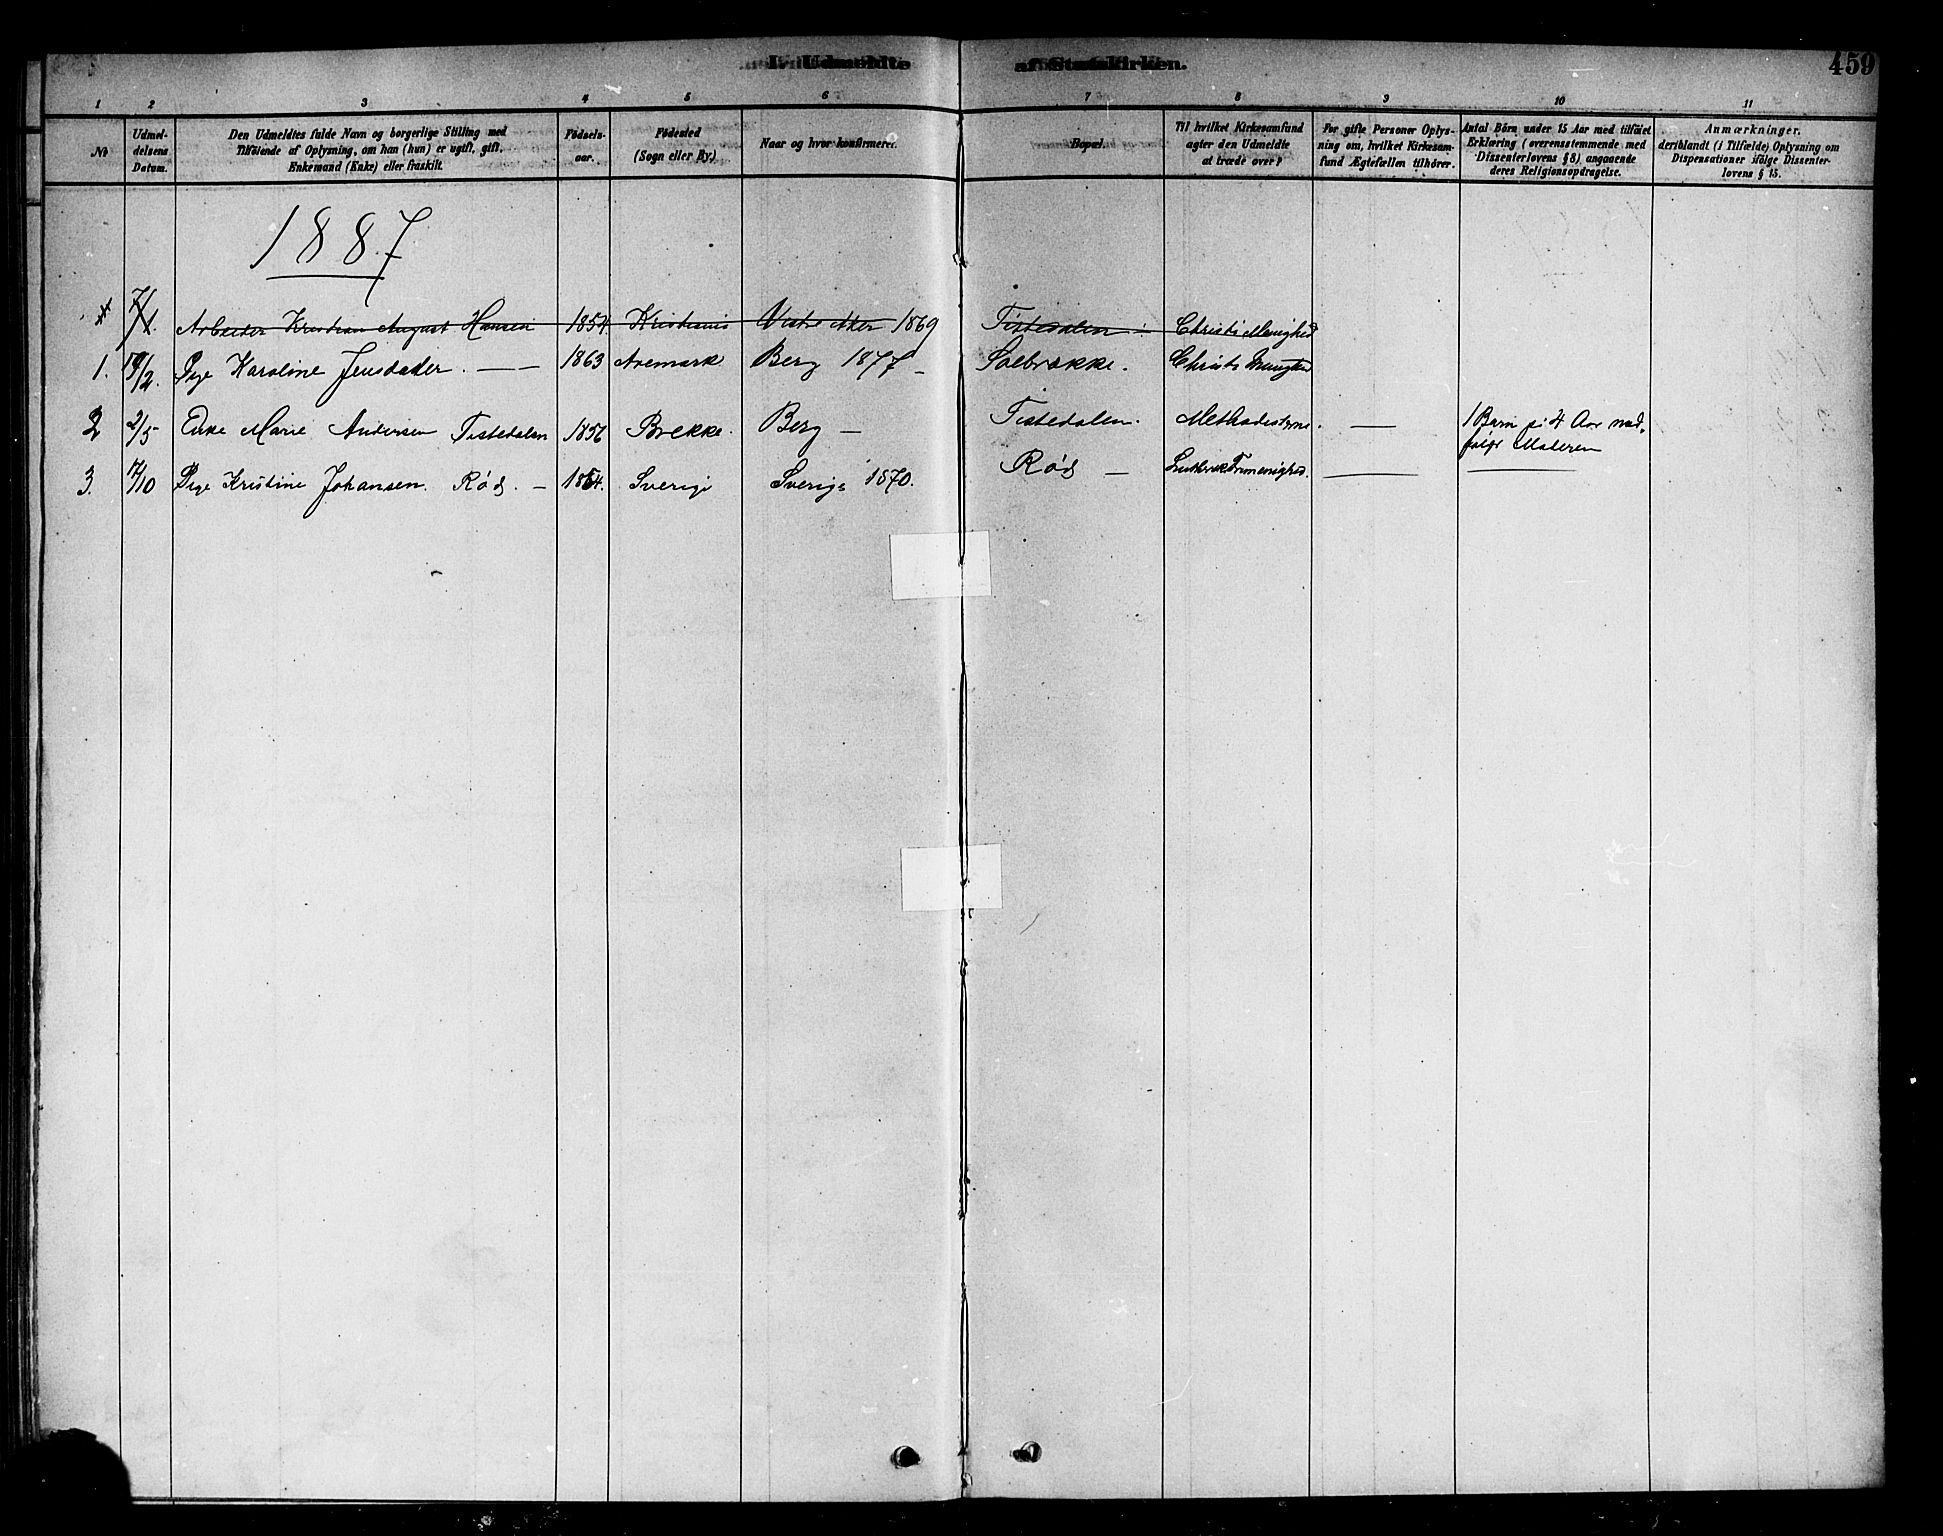 L. Udmeldte af Statskirken.
459
1 2 3 4 5 6 7 8 9 10 11
No
Udmel-
delsens
Datum.
Den Udmeldtes fulde Navn og borgerlige Stilling med
Tilföiende af Oplysning, om han (hun) er ugift, gift,
Enkemand (Enke) eller fraskilt.
Fødsels-
aar.
Fødested
(Sogn eller By.)
Naar og hvor konfirmeret.
Bopæl.
Til hvilket Kirkesamfund
agter den Udmeldte
at træde over?
For gifte Personer Oplys-
ning om, hvilket Kirkesam-
fund Ægtefællen tilhører.
Antal Börn under 15 Aar med tilföiet
Erklæring (overensstemmende med
Dissenterlovens § 8) angaaende
deres Religionsopdragelse.
Anmærkninger,
deriblandt (i Tilfælde) Oplysning om
Dispensationer ifölge Dissenter-
lovens § 15.
1887
7/1. Arbeider Kristian August Hansen 1854. Kristiania Vestre Aker 1869 Tistedalen Christi Menighed
1. 19/2. Pige Karoline Jensdatter. — 1863 Aremark Berg 1877 – Solbrække. Christi Menighed
2 2/5 Enke Marie Andersen Tistedalen 1856 Brekke. Berg — Tistedalen. Methodisterne. — 1 Barn på 4 Aar med-
følger Moderen
3. 17/10 Pige Kristine Johansen. Rød. – 1854. Sverige Sverige 1870. Rød — Luthersk Frimenighed. —